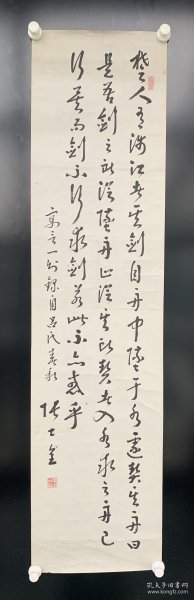 楚人有涉江者其剑自舟中坠于水遽契其舟曰
是吾剑之所从坠舟止从其所契者入水求之舟已
行矣而剑不行求剑若此不亦惑乎
寓言一则录自吕氏春秋
张士奎
孔夫子旧书网